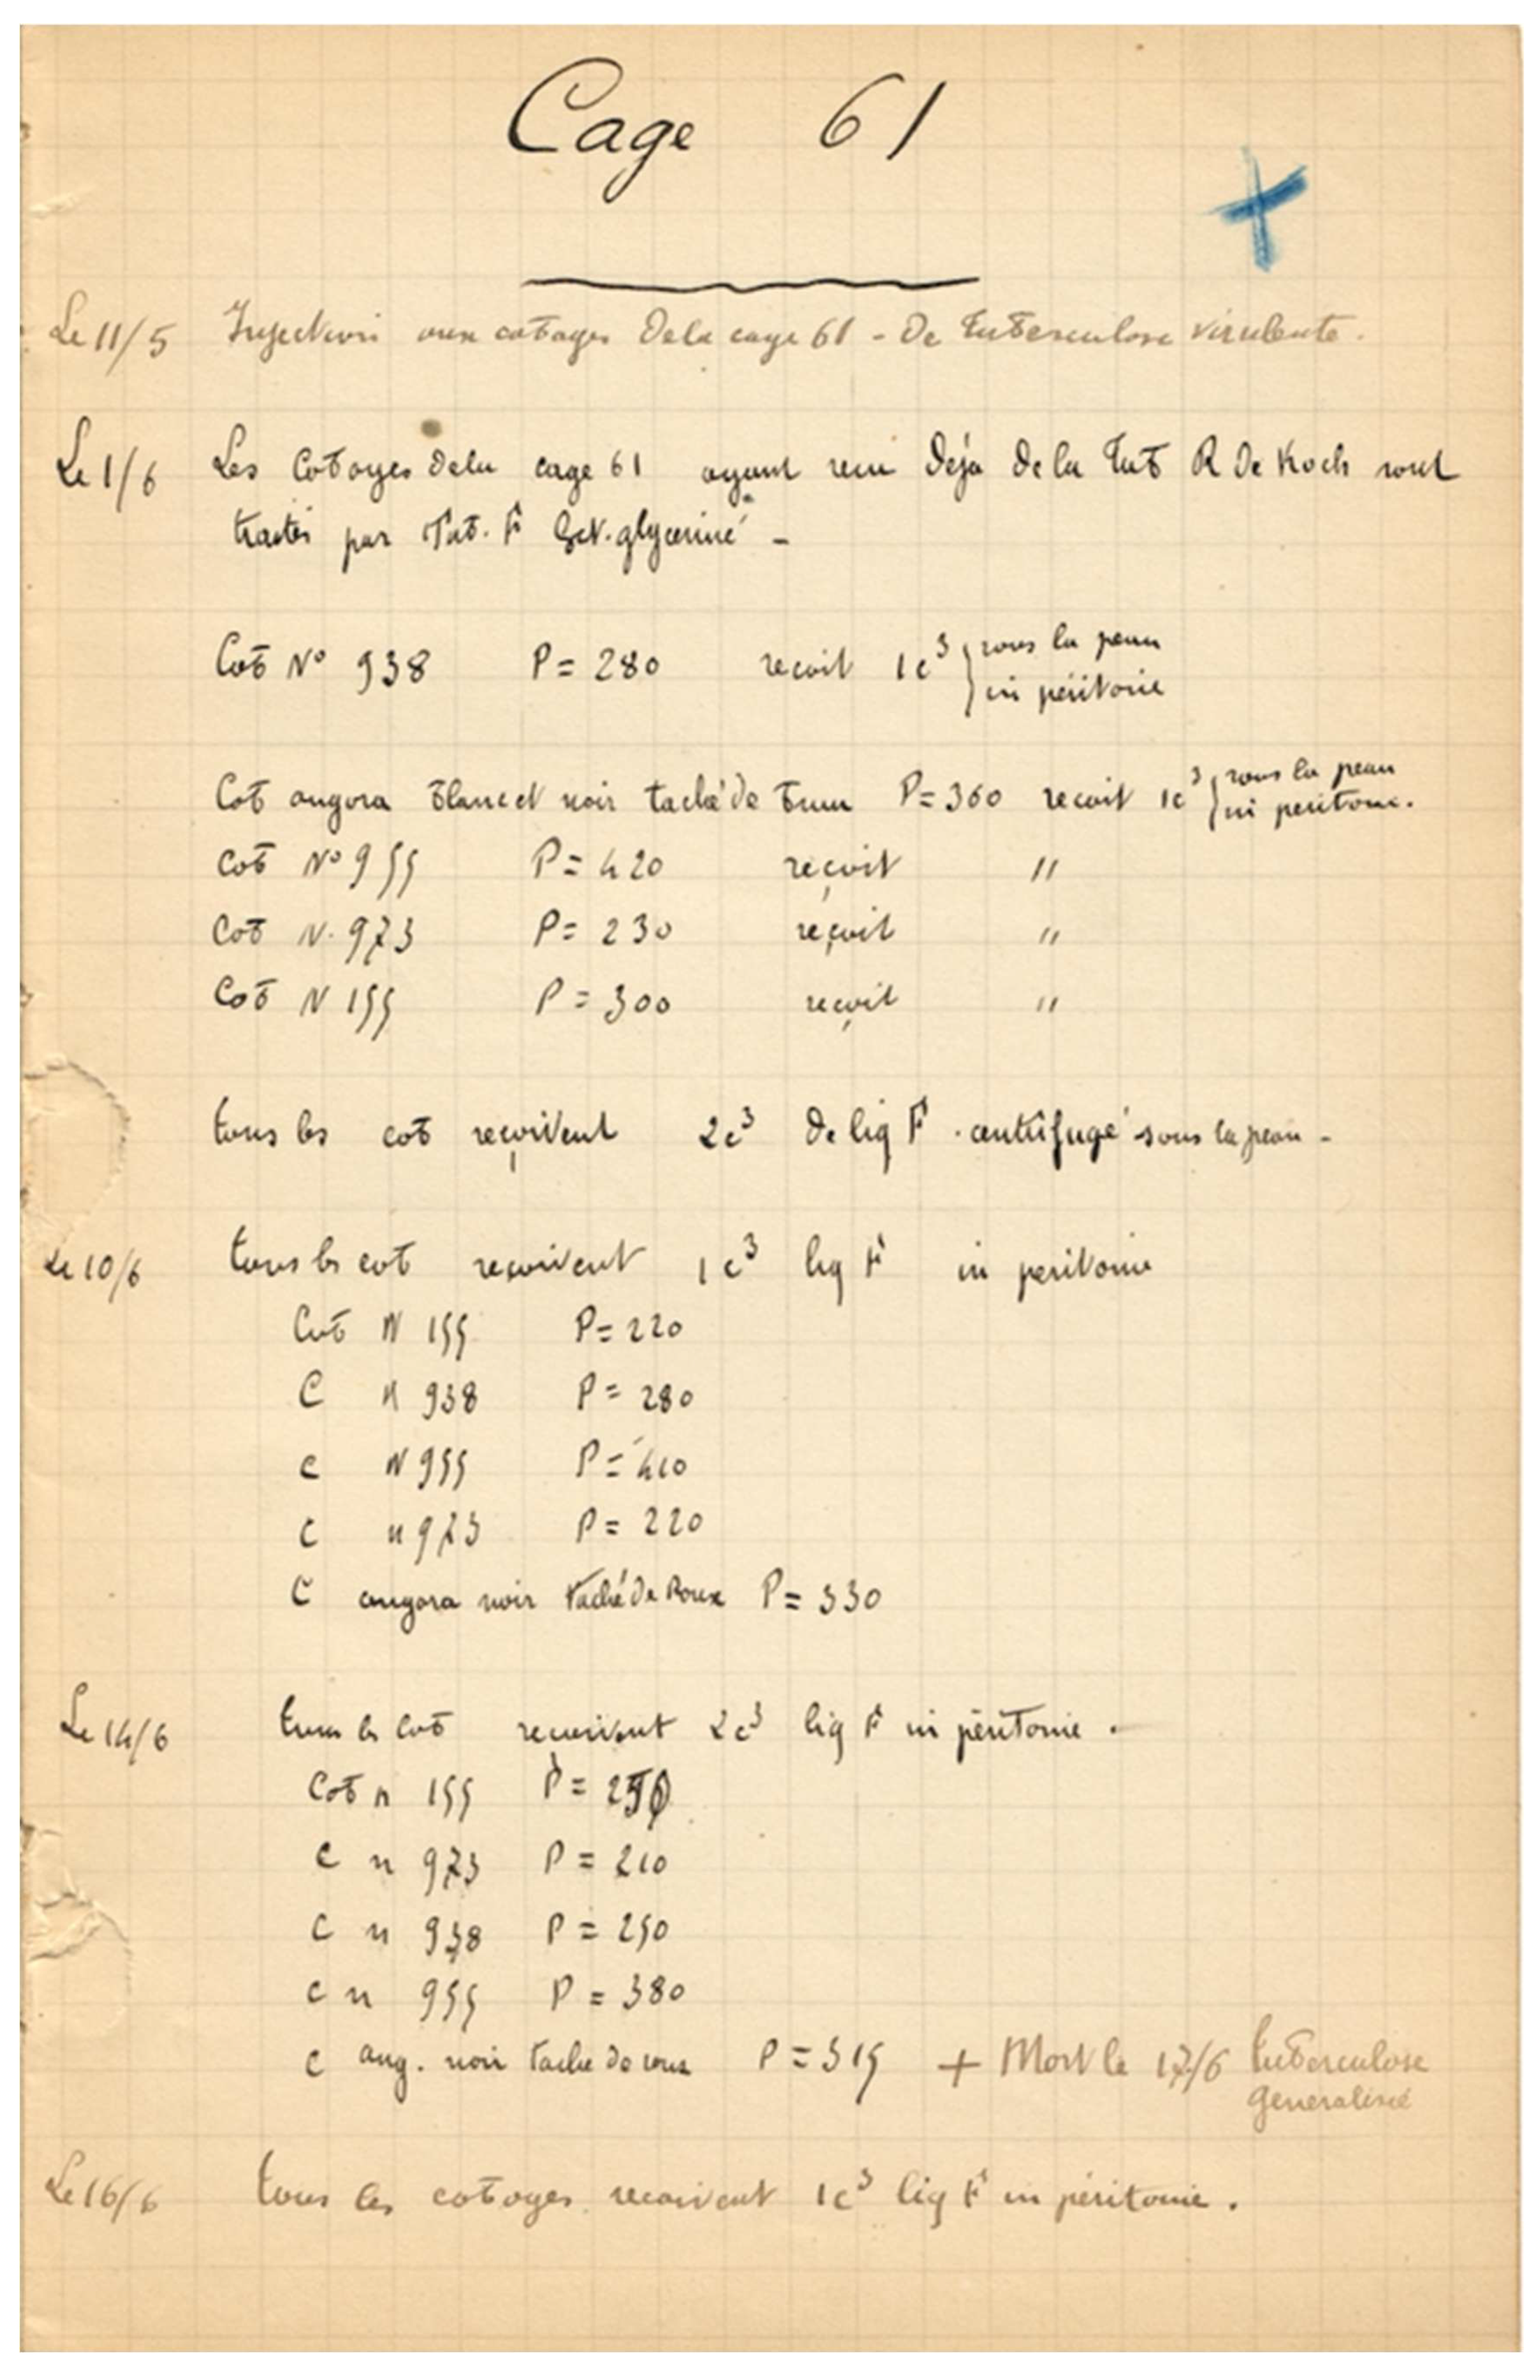 Cage 61
Le 11/5 Injection aux cobayes de la cage 61 - De tuberculose virulente.
Le 1/6 Les Cobayes de la cage 61 ayant recu Déja de la Tub R De Koch sont
traités par Tub. F glycériné -
Cob No 938 P = 280 recoit 1c3 } sous la peau
in péritoine
Cob angora blanc et noir taché de brun P = 360 recoit 1c3 } sous la peau
in peritoine.
Cob No 955 P = 420 reçoit "
Cob N. 973 P = 230 reçoit "
Cob N 155 P = 300 reçoit "
tous les cob reçoivent 2c3 de liq F. centrifugé sous la peau -
Le 10/6 tous les cob reçoivent 1c3 liq F in peritoine
Cob N 155 P = 220
C N 938 P = 280
C N 955 P = 410
C n 973 P = 220
C angora noir taché de Roux P = 330
Le 14/6 tous les cob recoivent 2c3 liq F in péritoine.
Cob n 155 P =
C n 973 P = 210
C n 938 P = 250
C n 955 P = 380
C ang. noir taché de roux P = 315 + Mort le 17/6 tuberculose
generalisé
Le 16/6 tous les cobayes recoivent 1c3 liq F in péritoine.